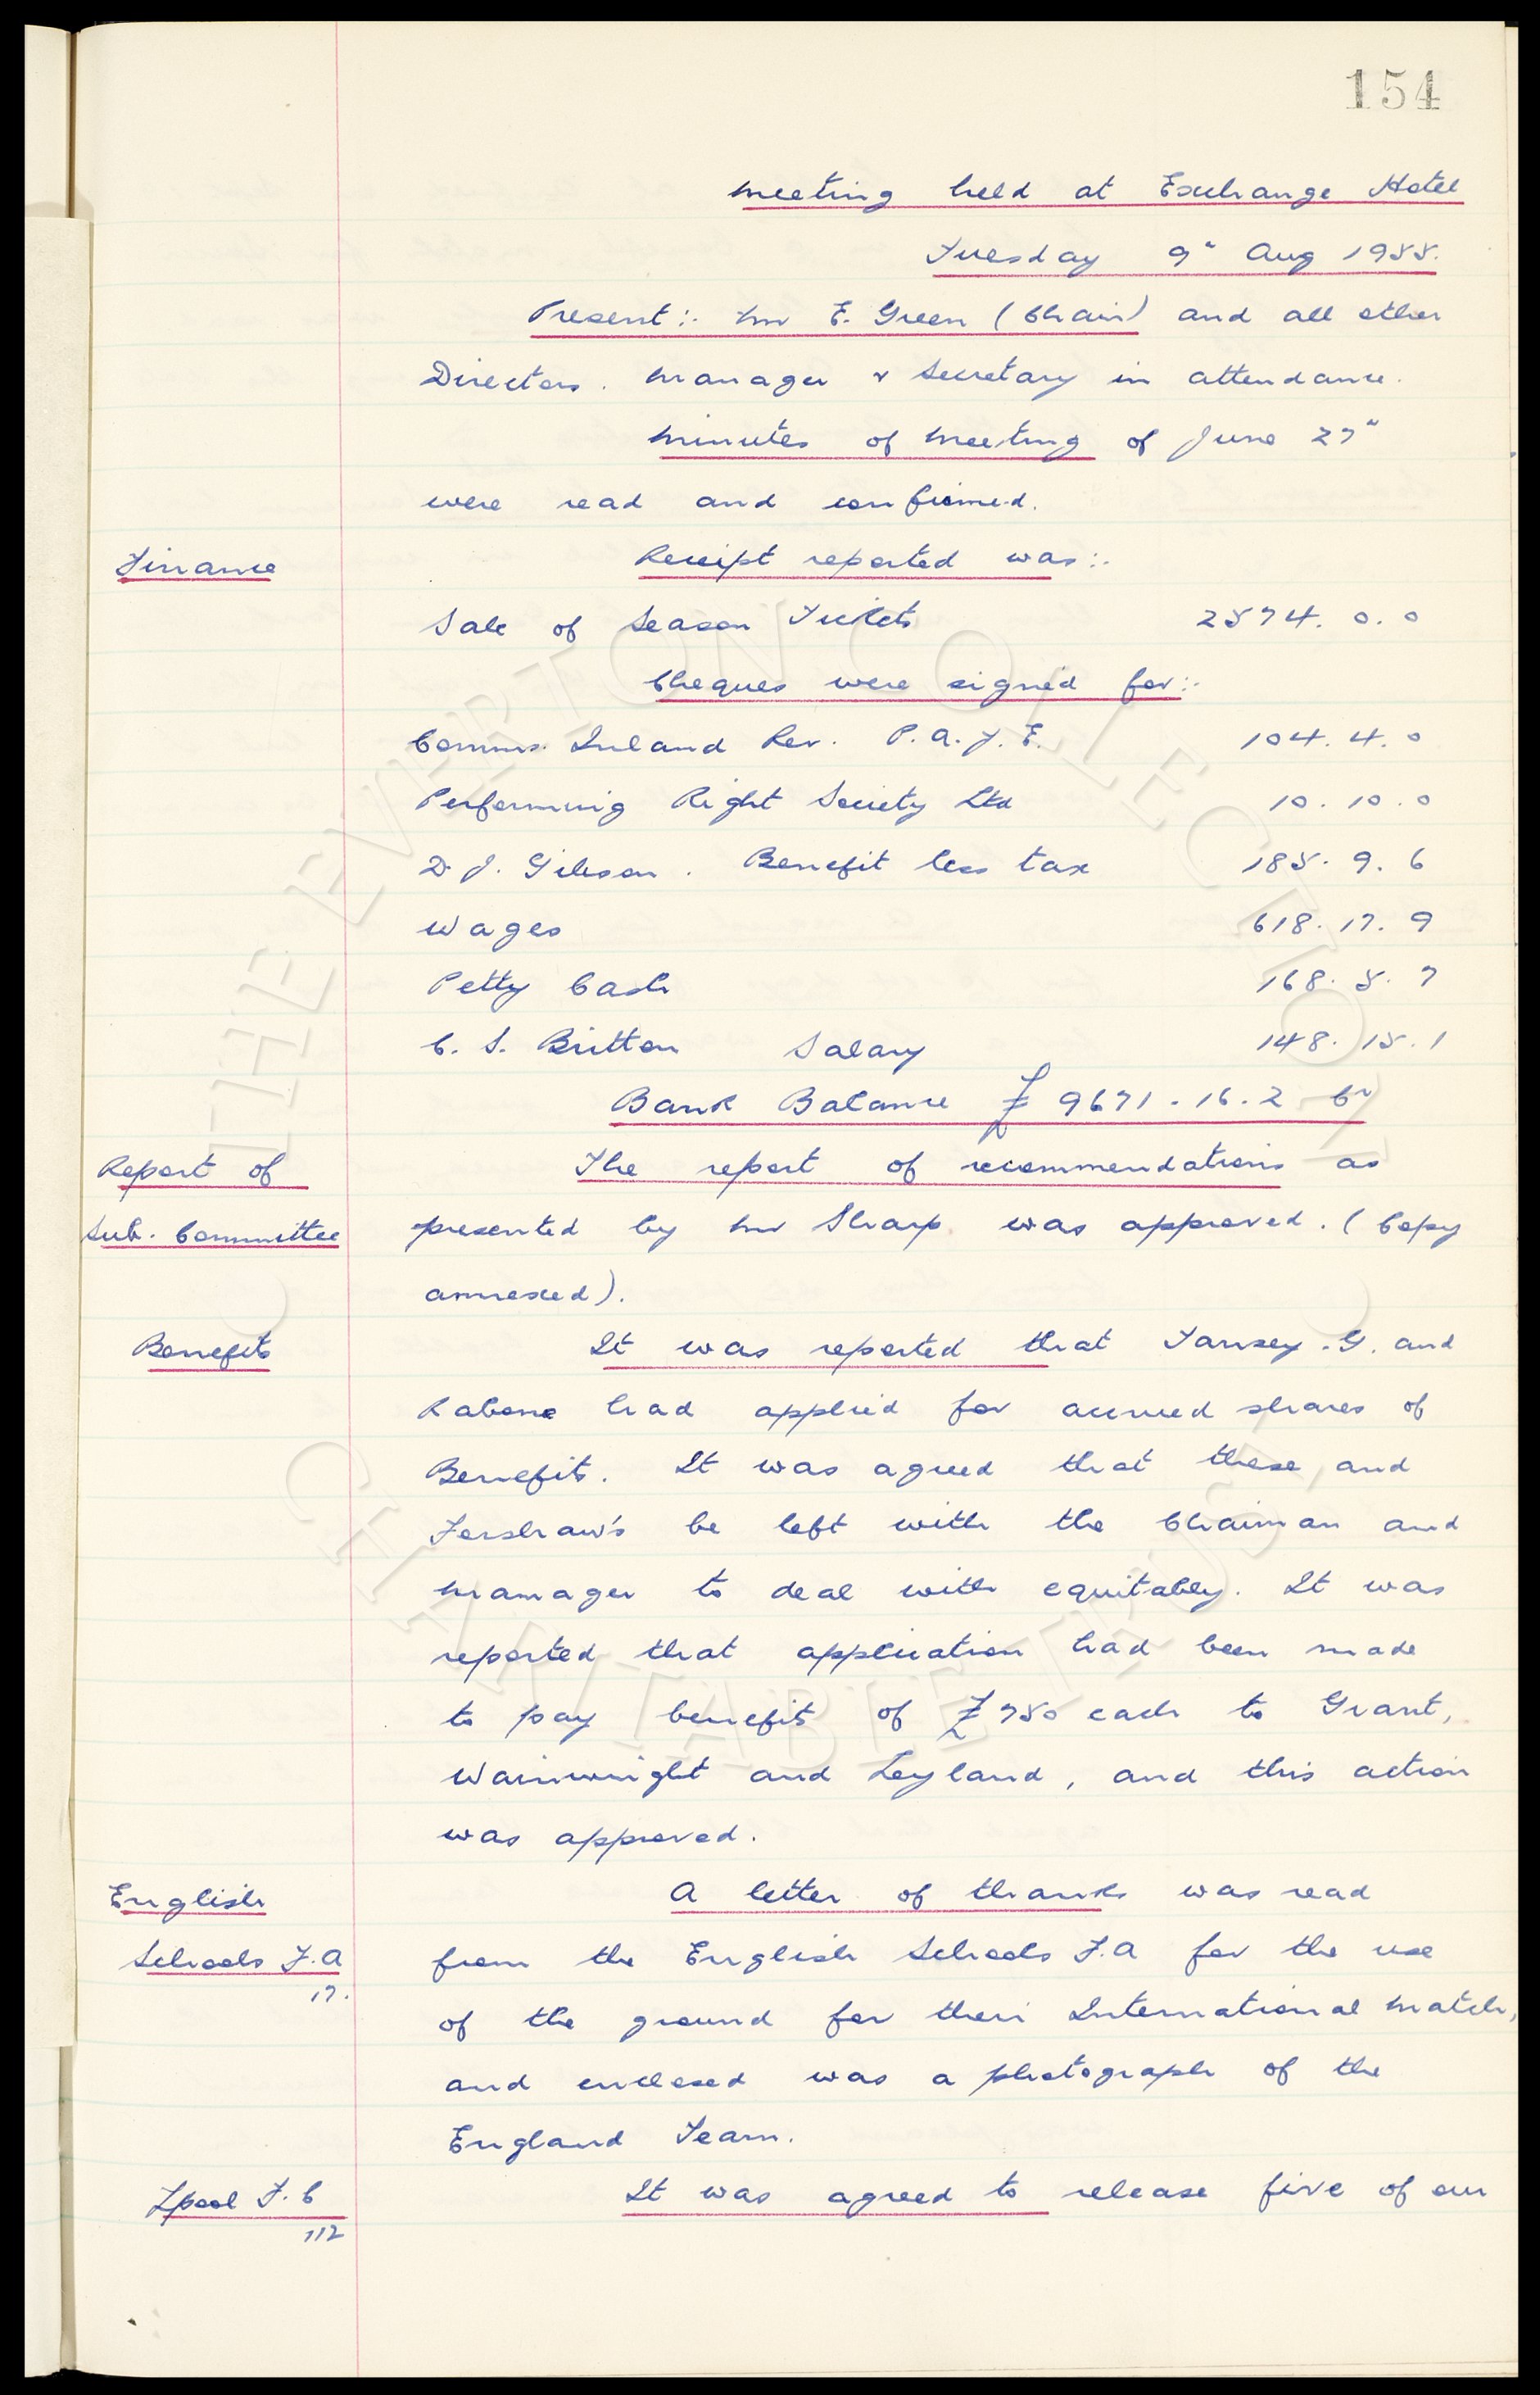 154
Meeting held at Exchange Hotel
Tuesday 9" Aug 1955.
Present:- Mr E. Green (Chair) and all other
Directors. Manager & Secretary in attendance.
Minutes of Meeting of June 27"
were read and confirmed.
Finance
Receipt reported was:-
Sale of Season Tickets 2574. 0. 0
Cheques were signed for:-
Comms. Inland Rev. P.A.Y.E. 104. 4. 0
Performing Right Society Ltd 10. 10. 0
D. J. Gibson. Benefit less tax 185. 9. 6
Wages 618. 17. 9
Petty Cash 168. 5. 7
C. S. Britton Salary 148. 15. 1
Bank Balance £ 9671. 16. 2 Cr
Report of
Sub. Committee
The report of recommendations as
presented by Mr Sharp was approved. (Copy
annexed).
Benefits
It was reported that Tansey. G. and
Rabone had applied for accrued shares of
Benefits. It was agreed that these, and
Forshaw's be left with the Chairman and
Manager to deal with equitably. It was
reported that application had been made
to pay benefits of £750 each to Grant,
Wainwright and Leyland, and this action
was approved.
English
Schools F.A
17.
A letter of thanks was read
from the English Schools F.A for the use
of the ground for their International Match,
and enclosed was a photograph of the
England Team.
Lpool F.C
112
It was agreed to release five of our
THE EVERTON COLLECTION
CHARITABLE TRUST